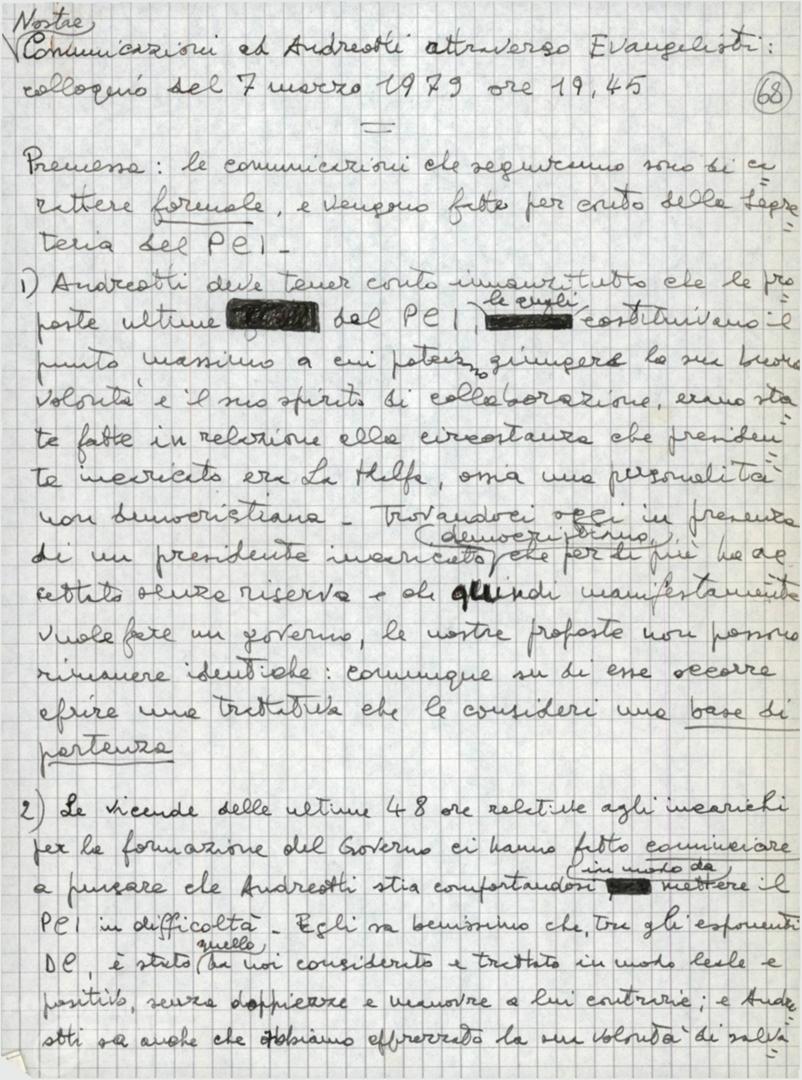 Nostre
Comunicazioni ad Andreotti attraverso Evangelisti:
colloquio del 7 marzo 1979 ore 19,45
68
Premessa: le comunicazioni che seguiranno sono di ca
rattere formale, e vengono fatte per conto della Segre
teria del PCI -
1) Andreotti deve tener conto innanzitutto che le pro
poste ultime del PCI, le quali costituivano il
punto massimo a cui potesse giungere la sua buona
volontà e il suo spirito di collaborazione, erano sta
te fatte in relazione alla circostanza che presiden
te incaricato era La Malfa, ossia una personalità
non democristiana - Trovandoci oggi in presenza
di un presidente incaricato democristiano, che per di più ha ac
cettato senza riserva e che quindi manifestamente
vuole fare un governo, le nostre proposte non possono
rimanere identiche: comunque su di esse occorre
aprire una trattativa che le consideri una base di
partenza
2) Le vicende delle ultime 48 ore relative agli incarichi
per la formazione del Governo ci hanno fatto cominciare
a pensare che Andreotti stia comportandosi in modo da mettere il
PCI in difficoltà - Egli sa benissimo che, tra gli esponenti
DC, è stato quello da noi considerato e trattato in modo leale e
positivo, senza doppiezze e manovre a lui contrarie; e Andre
otti sa anche che abbiamo apprezzato la sua volontà di salva